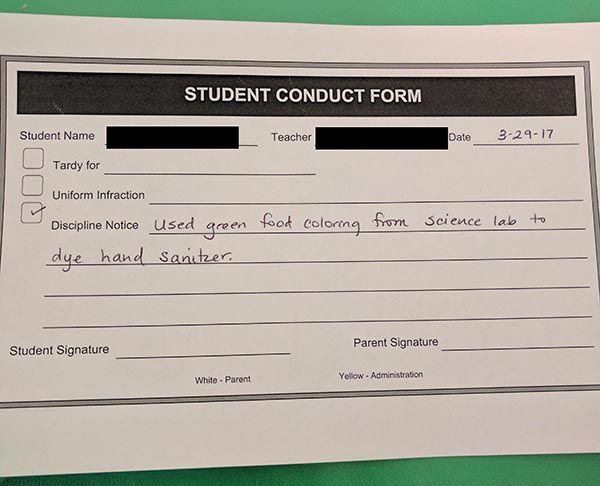 STUDENT CONDUCT FORM
Student Name Teacher Date 3-29-17
Tardy for
Uniform Infraction
Discipline Notice Used green food coloring from science lab to
dye hand sanitzer.
Student Signature Parent Signature
White - Parent Yellow - Administration